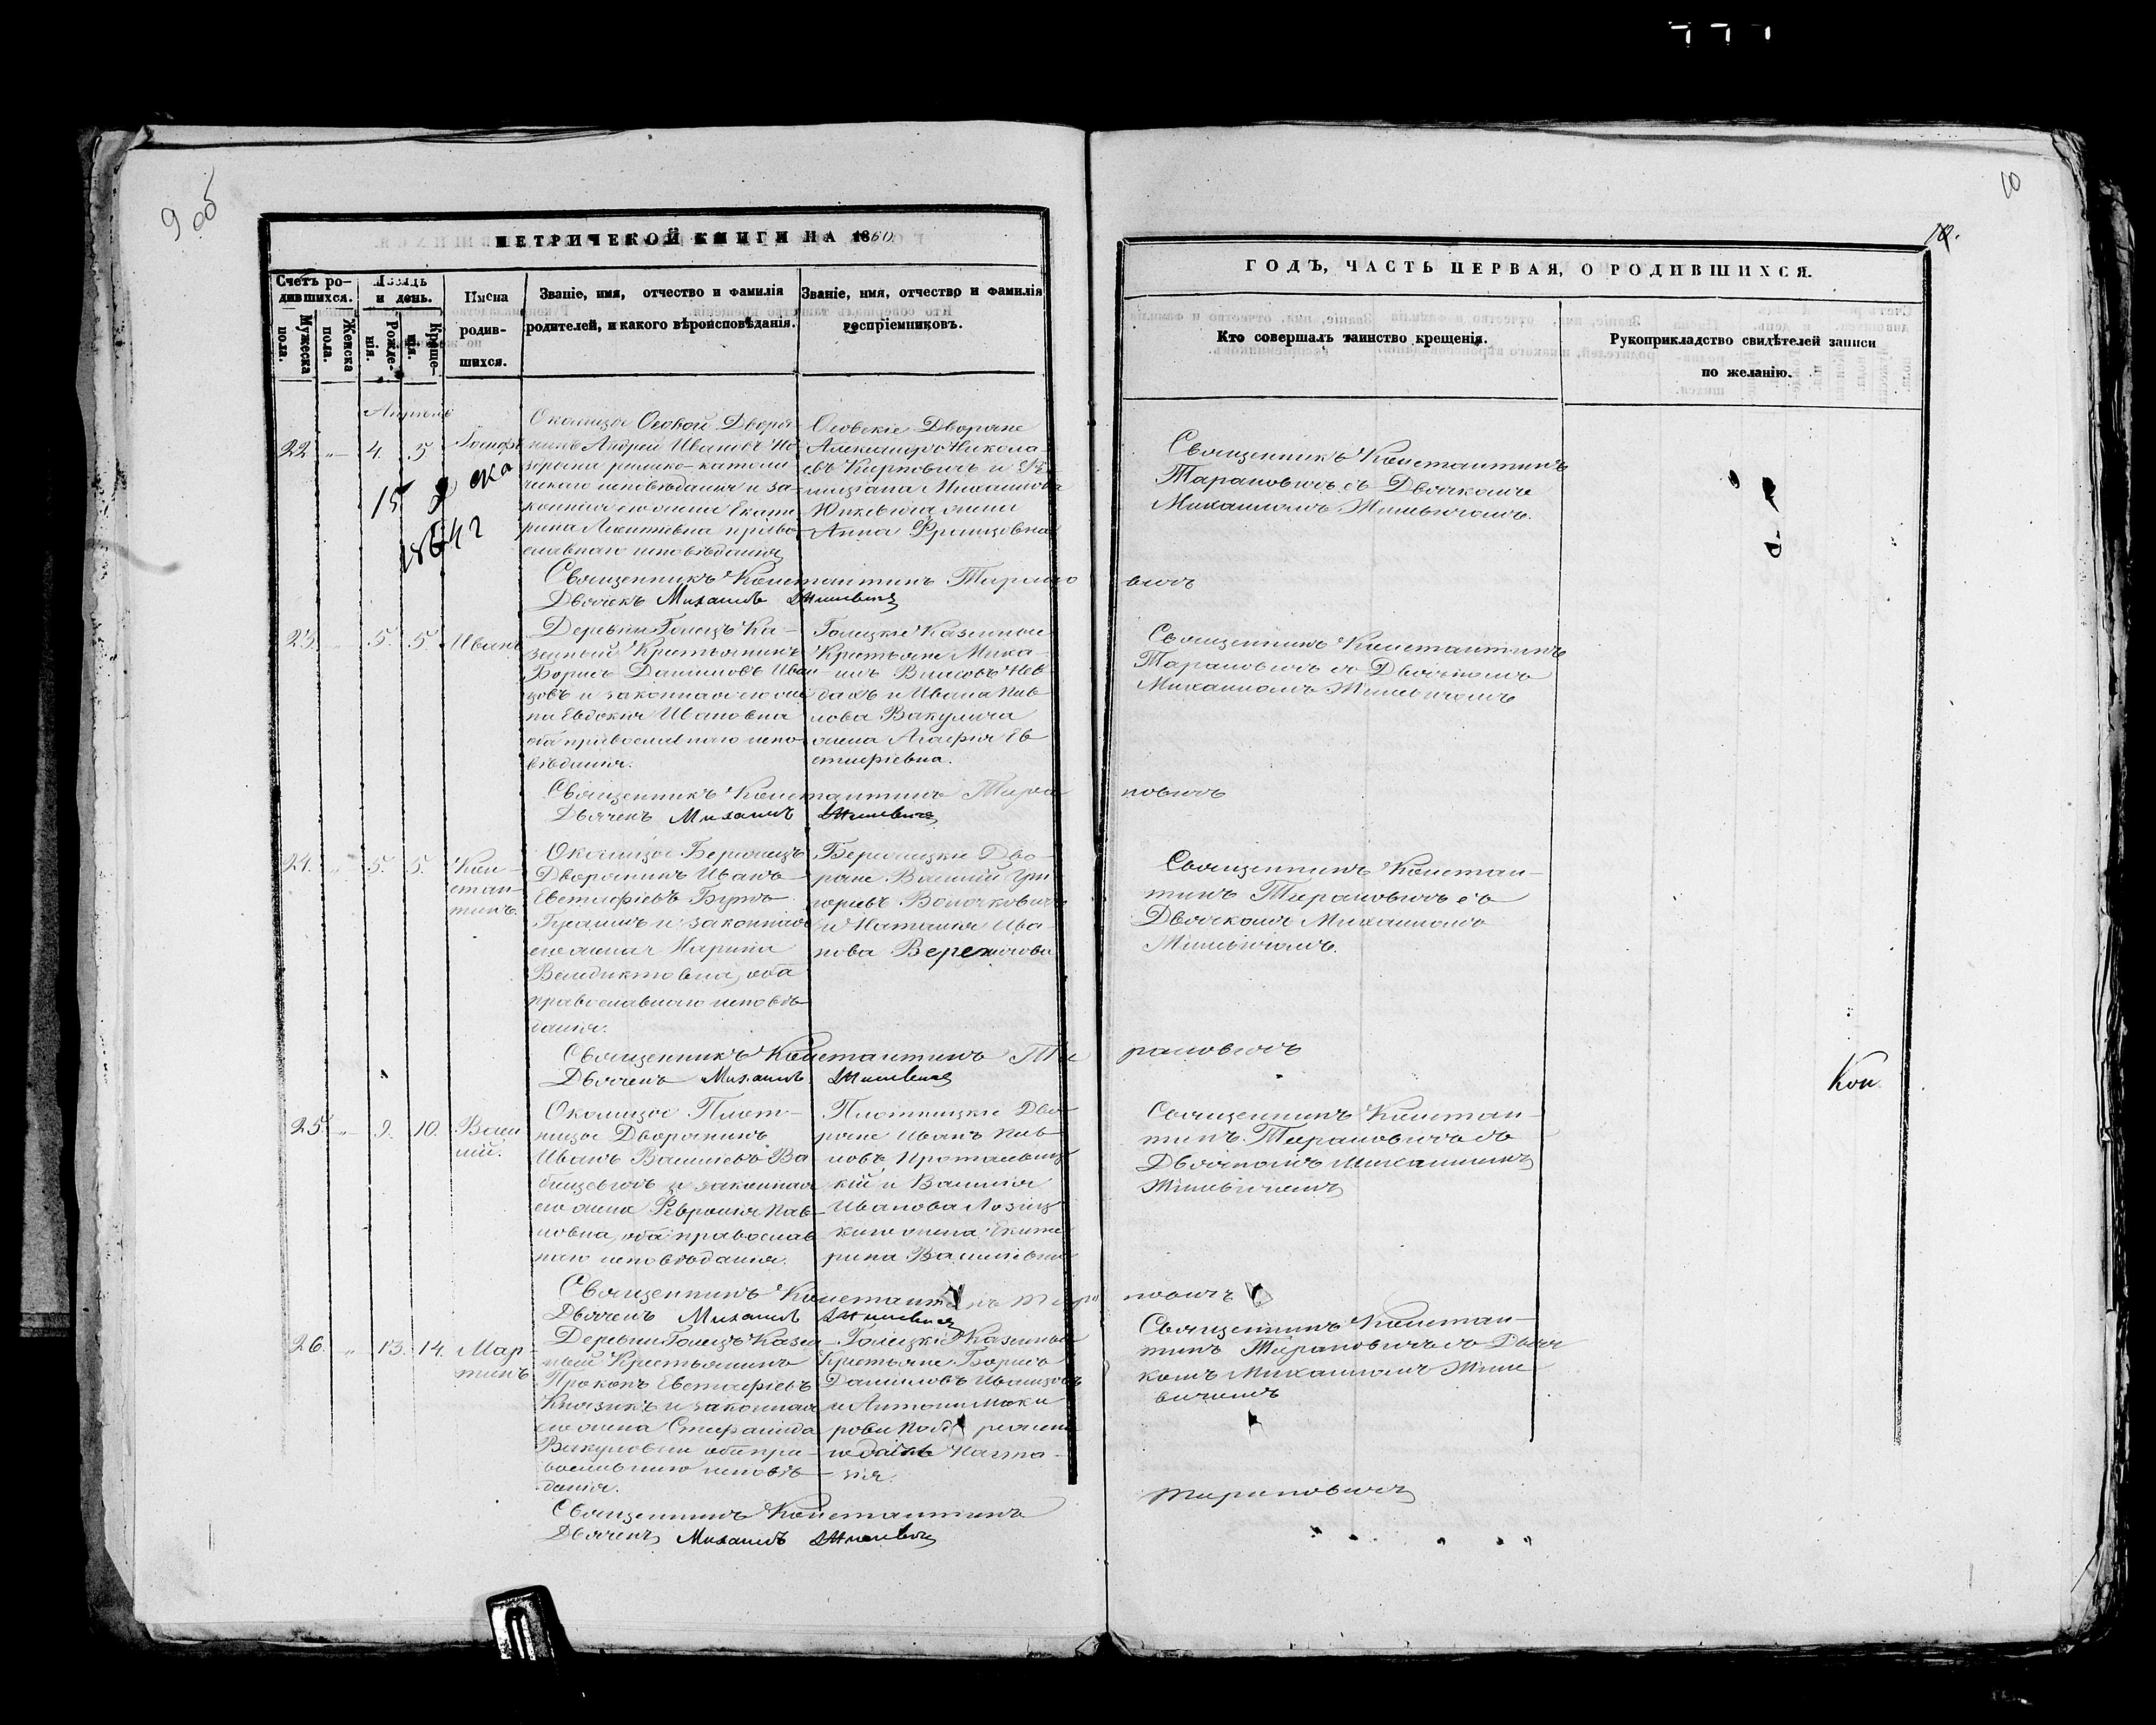 9 об
10
10.
МЕТРИЧЕКОЙ КНИГИ НА 1860
ГОДЪ, ЧАСТЬ ПЕРВАЯ, О РОДИВШИХСЯ.
Счетъ ро-
дившихся.
Мужеска
пола.
Женска
пола.
Мѣсяцъ
и день.
Рожде-
нія.
Креще-
нія.
Имена
родив-
шихся.
Званіе, имя, отчество и фамилія
родителей, и какого вѣроисповѣданія.
Званіе, имя, отчество и фамилія
воспріемниковъ.
Кто совершалъ таинство крещенія.
Рукоприкладство свидѣтелей записи
по желанію.
Апрѣль
22 „ 4. 5 Іосифъ
Околицы Осовой Дворя-
нинъ Андрей Ивановъ
римско-католи
ческаго исповѣданія и за-
конная его жена Екате
рина право-
славнаго исповѣданія
Осовскіе Дворяне
Александръ Никола-
евъ Карповичъ и
Михаилова
жена
Анна Францовна
Священникъ Константинъ
Тарановичъ съ Дьячкомъ
Михаиломъ Жилевичомъ.
15
Священникъ Константинъ Тарано
вичъ
Дьячекъ Михаилъ Жилевичъ
23. „ 5. 5. Иванъ
Деревни Голецъ Ка-
зенный Крестьянинъ
Борисъ Даниловъ Иван
цовъ и законная его же
на Евдокія Ивановна
оба православнаго испо-
вѣданія.
Голецкіе Казенные
Крестьяне Миха-
илъ Власовъ Нев-
дахъ и Ивана Пав-
лова Вакулича
жена Агафія Ев
стафіевна.
Священникъ Константинъ
Тарановичъ съ Дьячкомъ
Михаиломъ Жилевичомъ
Священникъ Константинъ Тара
новичъ
Дьячекъ Михаилъ Жилевичъ
24. „ 5. 5. Кон-
стан-
тинъ.
Околицы Бережецъ
Дворянинъ Иванъ
Евстафіевъ Бутъ-
Гусаимъ и законная
его жена Марина
Венедиктовна, оба
православнаго исповѣ-
данія.
Бережецкіе Дво-
ряне Василій Гри
горьевъ Волочковичъ
и Наталія Ива-
нова
Священникъ Констан-
тинъ Тарановичъ съ
Дьячкомъ Михаиломъ
Жилевичомъ.
Священникъ Константинъ Та
рановичъ
Дьячекъ Михаилъ Жилевичъ
Кон
25. „ 9. 10. Васи
лій.
Околицы Плот-
ницы Дворянинъ
Иванъ Васильевъ Ба
бицевичъ и законная
его жена Февронія Пав-
ловна, оба православ
наго исповѣданія.
Плотницкіе Дво-
ряне Иванъ Пав-
ловъ Протасевиц
кій и Василія
Иванова Лозиц
каго жена Екате
рина Васильевна
Священникъ Констан-
тинъ Тарановичъ съ
Дьячкомъ Михаиломъ
Жилевичемъ
Священникъ Константинъ Тара
новичъ
Дьячекъ Михаилъ Жилевичъ
26. „ 13. 14. Мар-
тинъ
Деревни Голецъ Казен
ный Крестьянинъ
Прокопъ Евстафіевъ
Князикъ и законная
его жена Стефанида
Вакуловна оба пра-
вославнаго исповѣ-
данія.
Голецкіе Казенные
Крестьяне Борисъ
Даниловъ Иванцовъ
и Антона Мака
рова
Наста-
зія.
Священникъ Констан-
тинъ Тарановичъ съ Дьяч
комъ Михаиломъ Жиле
вичемъ
Священникъ Константинъ
Тарановичъ
Дьячекъ Михаилъ Жилевичъ